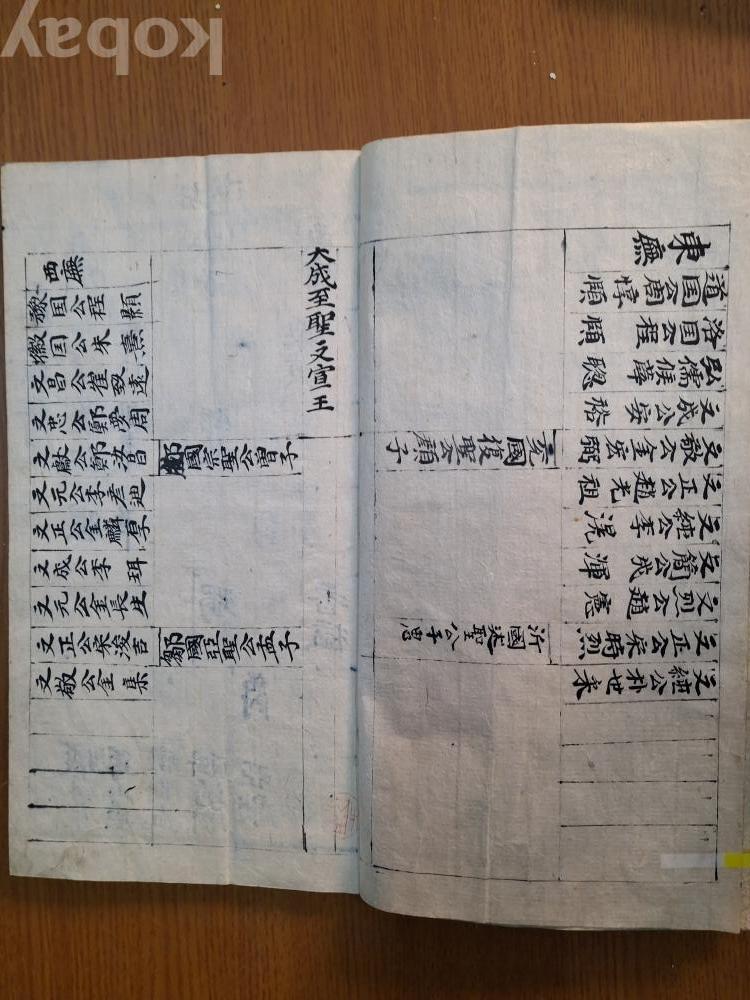 kobay
東廡
道国公周惇頤
洛国公程頤
弘儒候薛聰
文成公安裕
文敬公金宏弼
文正公趙光祖
文純公李滉
文簡公成渾
文烈公趙憲
文正公宋時烈
文純公朴世采
兗國復聖公顏子
沂國述聖公子思
大成至聖文宣王
郕國宗聖公曾子
鄒國亞聖公孟子
西廡
豫国公程顥
徽国公朱熹
文昌公崔致遠
文忠公鄭夢周
文獻公鄭汝昌
文元公李彦迪
文正公金麟厚
文成公李珥
文元公金長生
文正公宋浚吉
文敬公金集